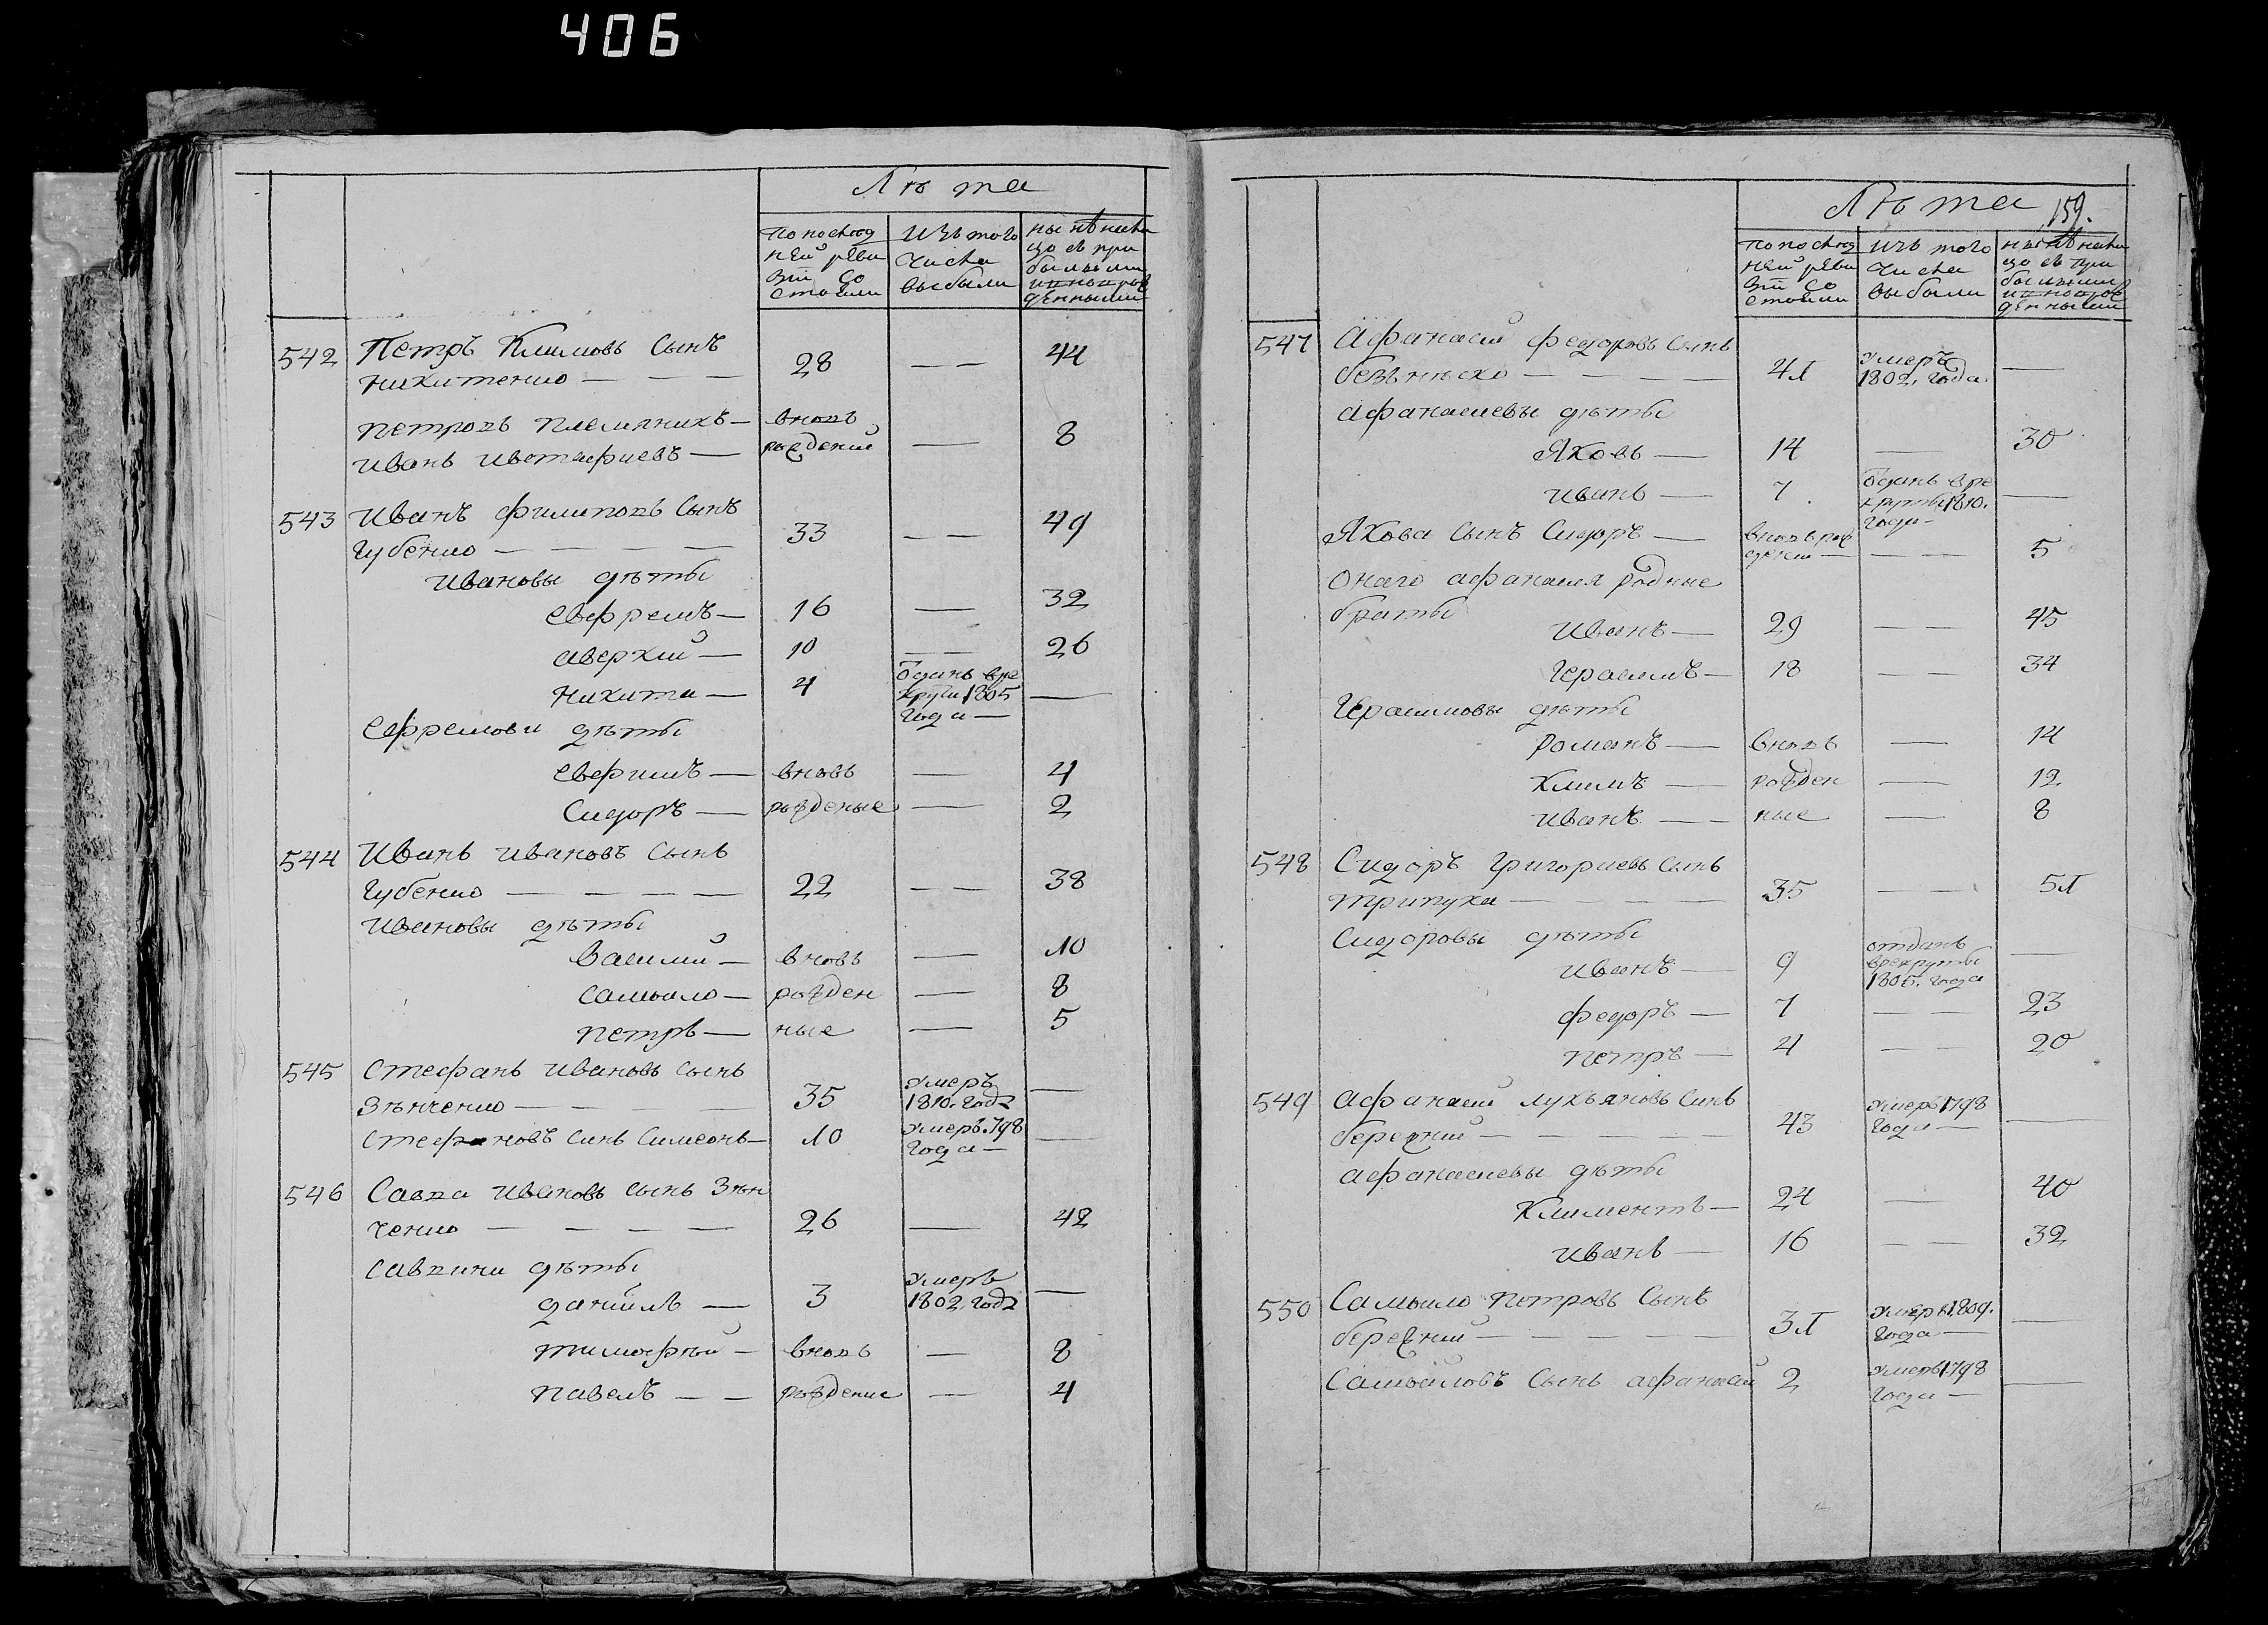 406
Лѣта
По послѣд ней реви зіи со стояли
Изъ того числа выбыли
Нынѣ на ли цо съ при былыми и новорож денными
542 Петръ Климовъ Сынъ
Никитенко — — — 28 — — 44
Петровъ племянникъ — вновь
Иванъ Ивстафиевъ — рождений — 8
543 Иванъ Филиповъ Сынъ
Губенко — — — — 33 — — 49
Ивановы дѣты
Евфремъ — 16 — 32
Аверкий — 10 — — 26
Никита — 4 Одданъ в ре круты 1805 Года — —
Ефремови дѣты
Евфимъ — вновь — 4
Сидоръ — рожденые — 2
544 Иванъ Ивановъ Сынъ
Губенко — — — — 22 — — 38
Ивановы дѣты
Василий — вновь — 10
Самойло — рожден — 8
Петръ — ные — 5
545 Стефанъ Ивановъ Сынъ
Зѣнченко — — — — 35 умеръ 1810. Года —
Стефановъ Синъ Симеонъ — 10 умеръ 1798 Года — —
546 Савва Ивановъ Сынъ Зѣн
ченко — — — — 26 — 42
Саввини дѣты
Даниилъ — 3 умеръ 1802. Года —
Тимофѣй — вновь — 8
Павелъ — — рождение — 4
Лѣта 159.
По послѣд ней реви зіи со стояли
Изъ того числа выбыли
Нынѣ на ли цо съ при былыми и новорож денными
547 Афанасий Федоровъ Сынъ
безънѣско — — — — 41 умеръ 1802. Года —
Афанасиевы дѣты
Яковъ — 14 — 30
Иванъ — 7 Одданъ в ре круты 1810. Года — —
Якова Сынъ Сидоръ — вновь рож дений — — — 5
Онаго Афанасия родные
браты
Иванъ — 29 — — 45
Герасимъ — 18 — — 34
Герасимовы дѣты
Романъ — вновь — 14
Климъ — рожден — 12
Иванъ — — ные — 8
548 Сидоръ Григориевъ Сынъ
Трипуха — — — — 35 — — 51
Сидоровы дѣты
Иванъ — 9 отданъ в рекруты 1805. Года —
Федоръ — 7 — — 23
Петръ — 4 — — 20
549 Афанасий Лукъяновъ Синъ
бережний — — — — — 43 умеръ 1798 Года — —
Афанасиевы дѣты
Климентъ — 24 — 40
Иванъ — 16 — — 32
550 Самойло Петровъ Сынъ
бережний — — — — — 31 умеръ 1809. Года — —
Самойловъ Сынъ Афанасий 2 умеръ 1798 Года — —